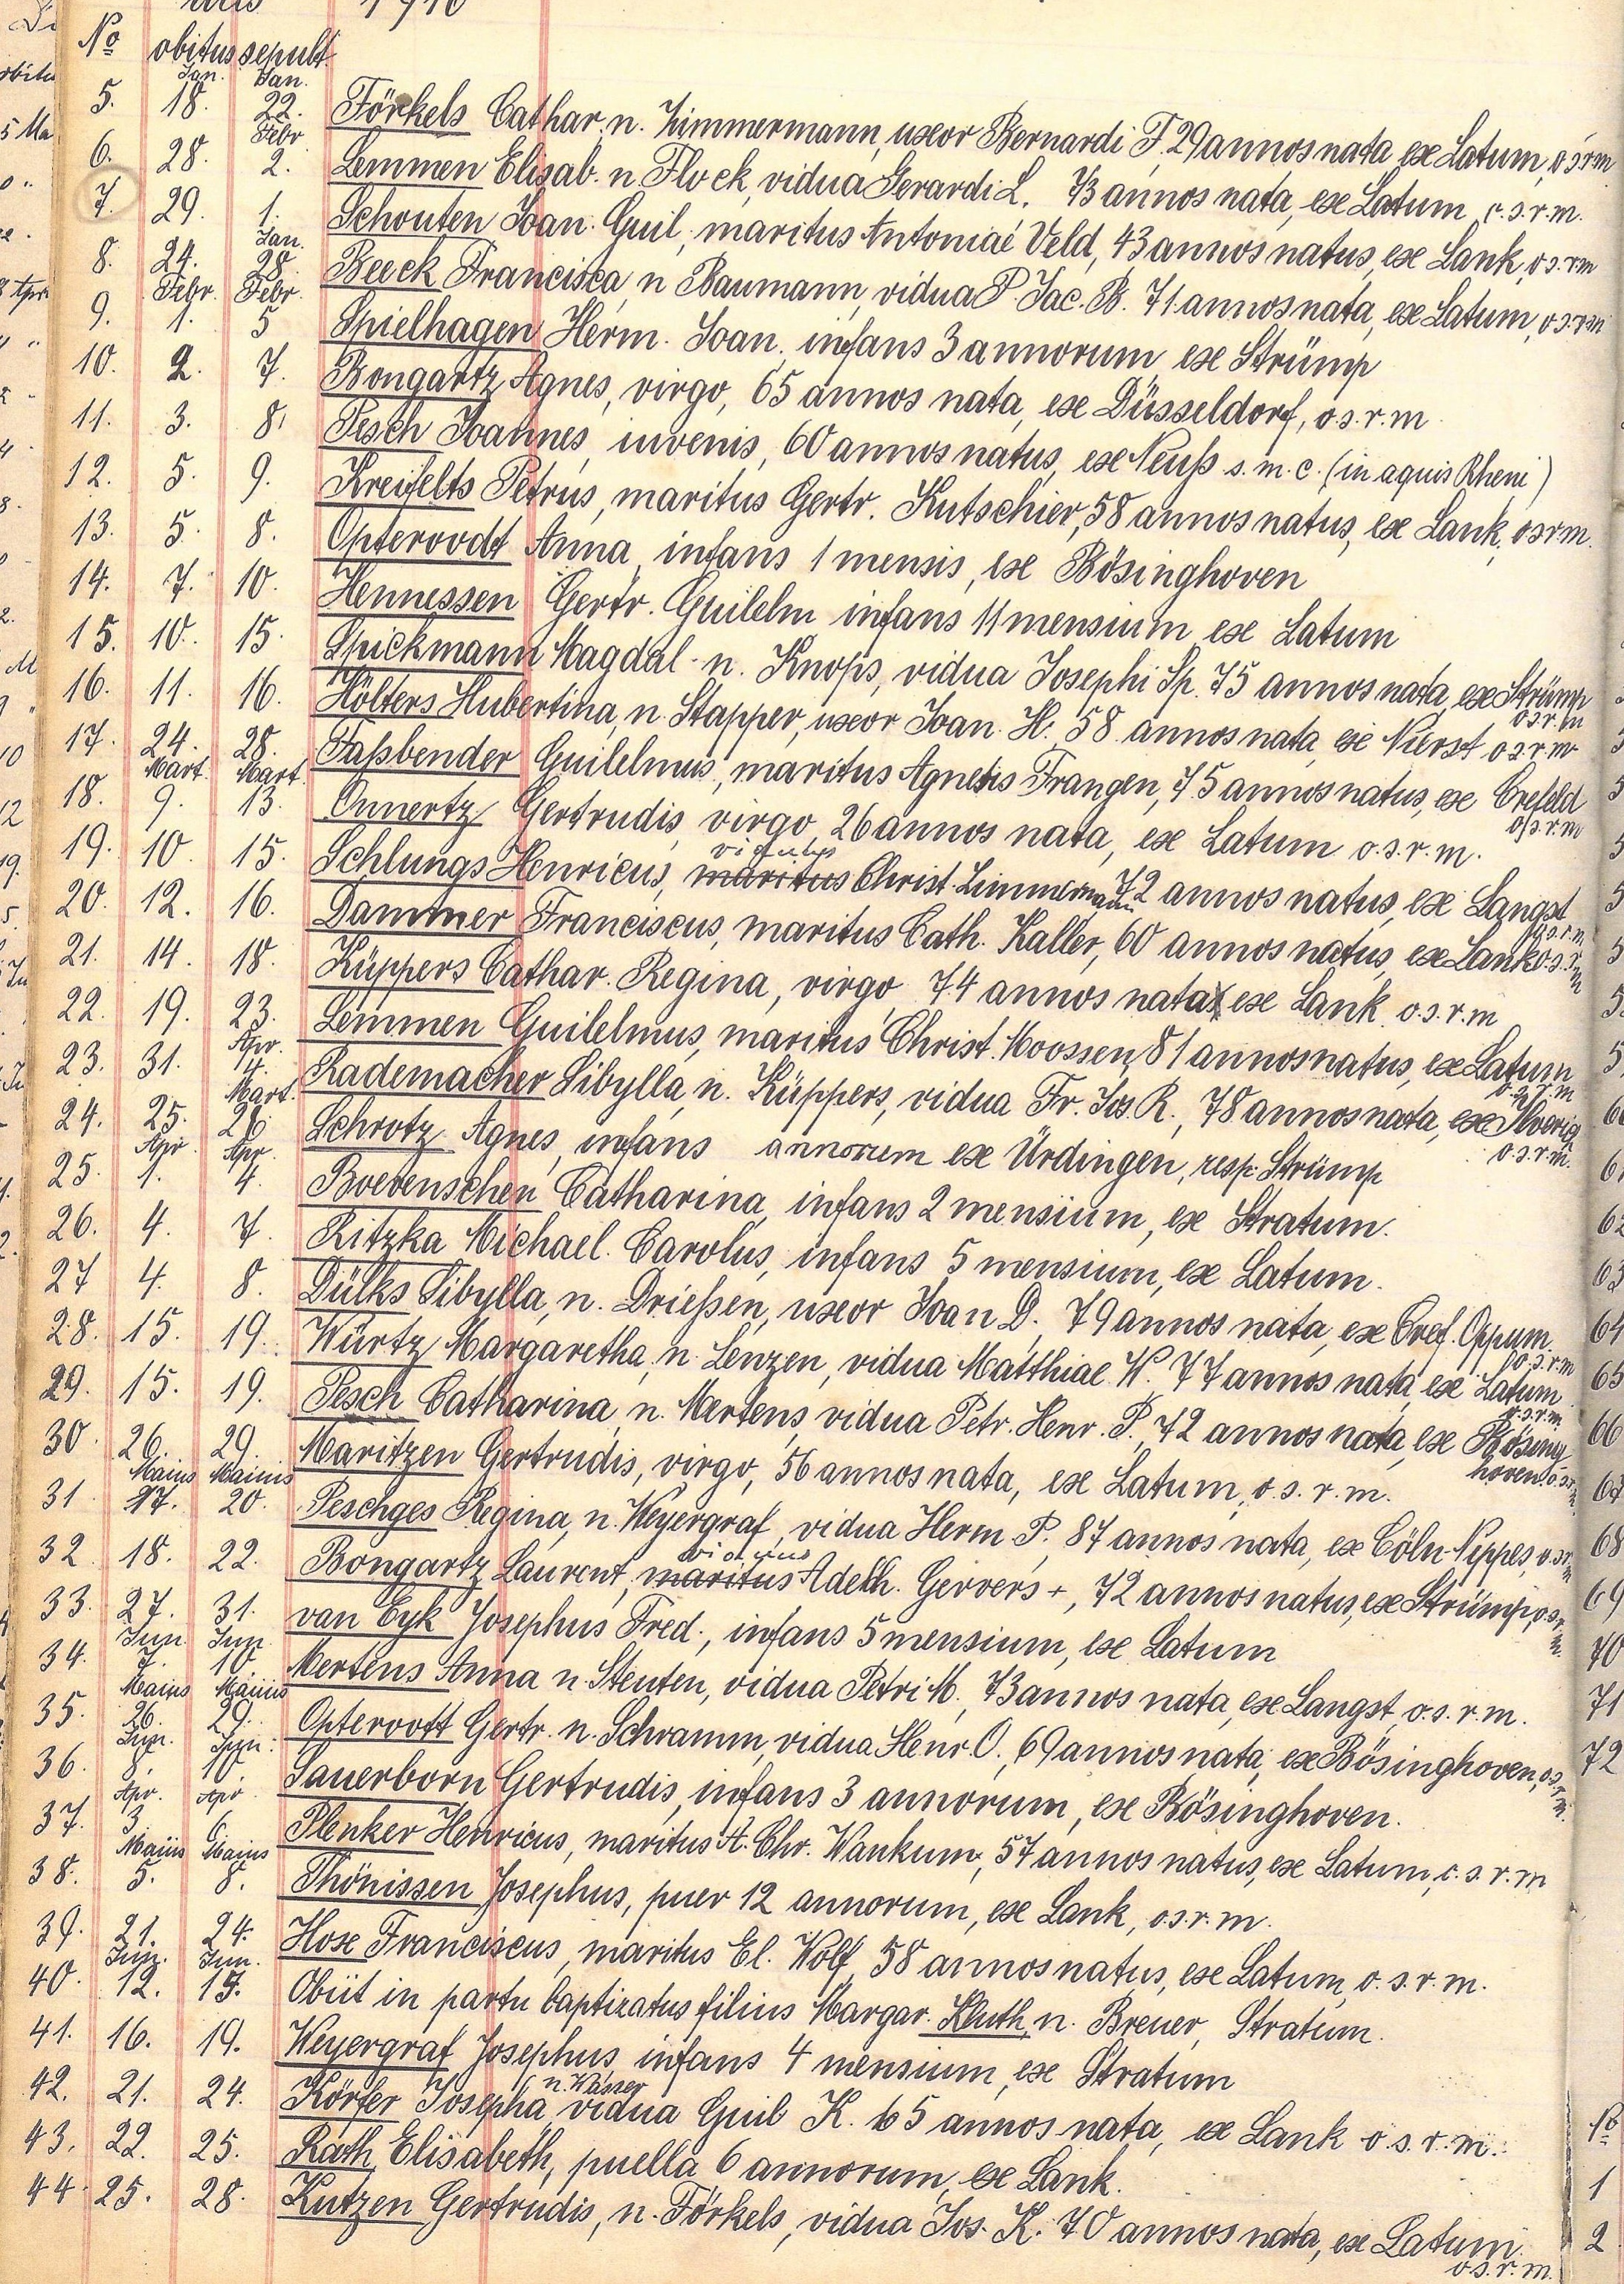 1916
No obitus sepult.
Jan. Jan.
5. 18. 22. Förkels Cathar. n. Zimmermann, uxor Bernardi F. 29 annos nata, ex Latum, o.s.r.m
Febr
6. 28. 2. Lemmen Elisab. n. Flock, vidua Gerardi L. 73 annos nata, ex Latum, o.s.r.m.
7. 29. 1. Schouten Joan. Guil., maritus Antoniae Veld, 43 annos natus, ex Lank, o.s.r.m
Jan.
8. 24. 28. Beeck Francisca, n Baumann, vidua P. Jac. B. 71 annos nata, ex Latum, o.s.r.m
Febr. Febr.
9. 1. 5 Spielhagen Herm. Joan. infans 3 annorum ex Strümp
10. 2. 7. Bongartz Agnes, virgo, 65 annos nata, ex Düsseldorf, o.s.r.m
11. 3. 8. Pesch Joannes, iuvenis, 60 annos natus, ex Neuß s.m.c. (in aquis Rheni)
12. 5. 9. Kreifelts Petrus, maritus Gertr. Kutschier, 58 annos natus, ex Lank, o.s.r.m.
13. 5. 8. Opteroodt Anna, infans 1 mensis, ex Bösinghoven
14. 7. 10. Hennessen Gertr. Guilelm infans 11 mensium ex Latum
15. 10. 15. Spickmann Magdal. n. Knops, vidua Josephi Sp. 75 annos nata, ex Strümp
o.s.r.m
16. 11. 16. Hölters Hubertina, n. Stapper, uxor Joan. H. 58 annos nata, ex Nierst o.s.r.m.
17. 24. 28. Faßbender Guilelmus, maritus Agnetis Frangen, 75 annos natus, ex Crefeld
o.s.r.m
Mart. Mart.
18. 9. 13. Onnertz Gertrudis, virgo, 26 annos nata, ex Latum o.s.r.m.
viduus
19. 10. 15. Schlungs Henricus, maritus Christ. Zimmermann 72 annos natus, ex Langst
o.s.r.m
20. 12. 16. Dammer Franciscus, maritus Cath. Kaller, 60 annos natus, ex Lank o.s.r.m
21. 14. 18. Küppers Cathar. Regina, virgo, 74 annos nata, ex Lank o.s.r.m
22. 19. 23. Lemmen Guilelmus, maritus Christ. Moossen, 81 annos natus, ex Latum
o.s.r.m
Apr.
23. 31. 4. Rademacher Sibylla, n. Küppers, vidua Fr. Jos. R., 78 annos nata, ex Ilverich
o.s.r.m.
Mart.
24. 25. 28. Schrotz Agnes, infans annorum ex Ürdingen, resp. Strümp
Apr Apr.
25. 1. 4. Boevenschen Catharina, infans 2 mensium, ex Stratum.
26. 4. 7. Ritzka Michael. Carolus, infans 5 mensium, ex Latum.
27 4. 8. Dülks Sibylla, n. Drießen, uxor Joan D., 79 annos nata, ex Cref. Oppum.
o.s.r.m
28. 15. 19. Würtz Margaretha, n. Lenzen, vidua Matthiae W. 77 annos nata, ex Latum
o.s.r.m.
29. 15. 19. Pesch Catharina, n. Mertens, vidua Petr. Henr. P., 72 annos nata, ex Bösing
hoven o.s.r.m
30. 26. 29. Maritzen Gertrudis, virgo, 56 annos nata, ex Latum, o.s.r.m.
Maius Maius
31. 17. 20. Peschges Regina, n. Weyergraf, vidua Herm. P. 87 annos nata, ex Cöln-Nippes, o.s.r.m
viduus
32. 18. 22. Bongartz Laurent, maritus Adelh. Gervers +, 72 annos natus, ex Strümp, o.s.r.m.
33. 27. 31. van Eyk Josephus Fred., infans 5 mensium, ex Latum
Jun. Jun.
34. 7. 10 Mertens Anna n. Stenten, vidua Petri M. 73 annos nata, ex Langst, o.s.r.m.
Maius Maius
35. 26. 29. Opteroott Gertr. n. Schramm, vidua Henr. O., 69 annos nata, ex Bösinghoven, o.s.r.m.
Jun. Jun.
36. 8. 10. Sauerborn Gertrudis, infans 3 annorum, ex Bösinghoven.
Apr. Apr.
37. 3 6. Plenker Henricus, maritus A. Chr. Wankum, 57 annos natus, ex Latum, o.s.r.m
Maius Maius
38. 5. 8. Thönissen Josephus, puer 12 annorum, ex Lank, o.s.r.m.
39. 21. 24. Hox Franciscus, maritus El. Wolf, 58 annos natus, ex Latum, o.s.r.m.
Jun. Jun.
40. 12. 15. Obiit in partu baptizatus filius Margar. Kluth, n. Breuer, Stratum.
41. 16. 19. Weyergraf Josephus, infans 4 mensium, ex Stratum
n. Wasser
42. 21. 24. Körfer Josepha vidua Guil K. 65 annos nata, ex Lank o.s.r.m.
43. 22. 25. Rath Elisabeth, puella 6 annorum, ex Lank.
44. 25. 28. Kutzen Gertrudis, n. Förkels, vidua Jos. K. 70 annos nata, ex Latum.
o.s.r.m.
64
65
66
68
69
70
71
72
No
1
2